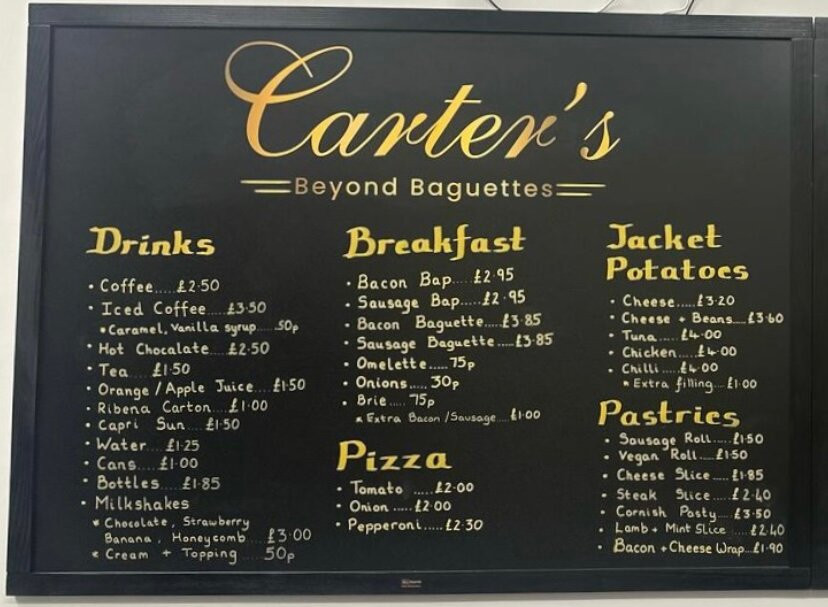 Carter's
Beyond Baguettes
Drinks
• Coffee....£2.50
• Iced Coffee....£3.50
*Caramel, Vanilla syrup.....50p
• Hot Chocalate...£2.50
• Tea ... £1.50
• Orange/Apple Juice....£1.50
• Ribena Carton...£1.00
• Capri Sun....£1.50
• Water....£1.25
• Cans....£1.00
• Bottles.....£1.85
• Milkshakes
* Chocolate, Strawberry
Banana, Honeycomb....£3.00
* Cream + Topping....50p
Breakfast
• Bacon Bap....£2.95
• Sausage Bap....£2.95
• Bacon Baguette....£3.85
• Sausage Baguette....£3.85
• Omelette.....75p
• Onions....30p
• Brie....75p
* Extra Bacon/Sausage...£1.00
Pizza
• Tomato .....£2.00
• Onion ....£2.00
• Pepperoni.....£2.30
Jacket
Potatoes
• Cheese.....£3.20
• Cheese + Beans...£3.60
• Tuna.....£4.00
• Chicken....£4.00
• Chilli.....£4.00
* Extra filling....£1.00
Pastries
• Sausage Roll....£1.50
• Vegan Roll....£1.50
• Cheese Slice....£1.85
• Steak Slice....£2.40
• Cornish Pasty....£3.50
• Lamb + Mint Slice ....£2.40
• Bacon + Cheese Wrap...£1.90